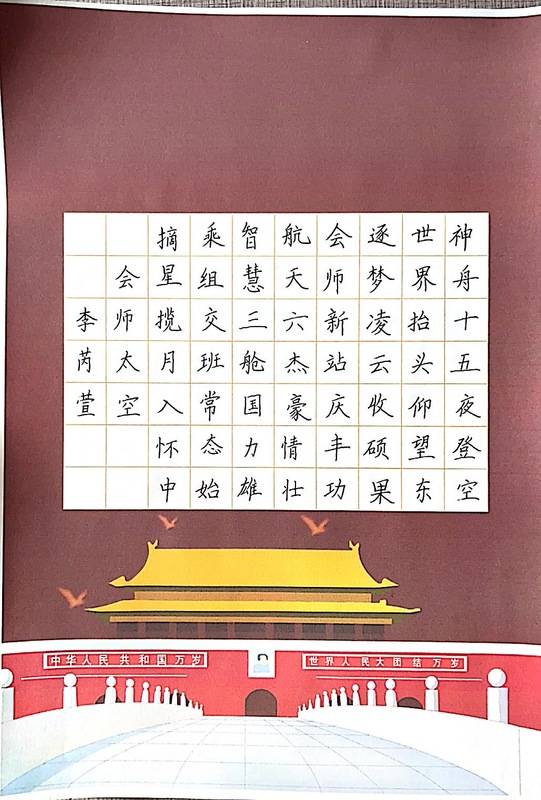 神舟十五夜登空
世界抬头仰望东
逐梦凌云收硕果
会师新站庆丰功
航天六杰豪情壮
智慧三舱国力雄
乘组交班常态始
摘星揽月入怀中
会师太空
李芮萱
中华人民共和国万岁
世界人民大团结万岁